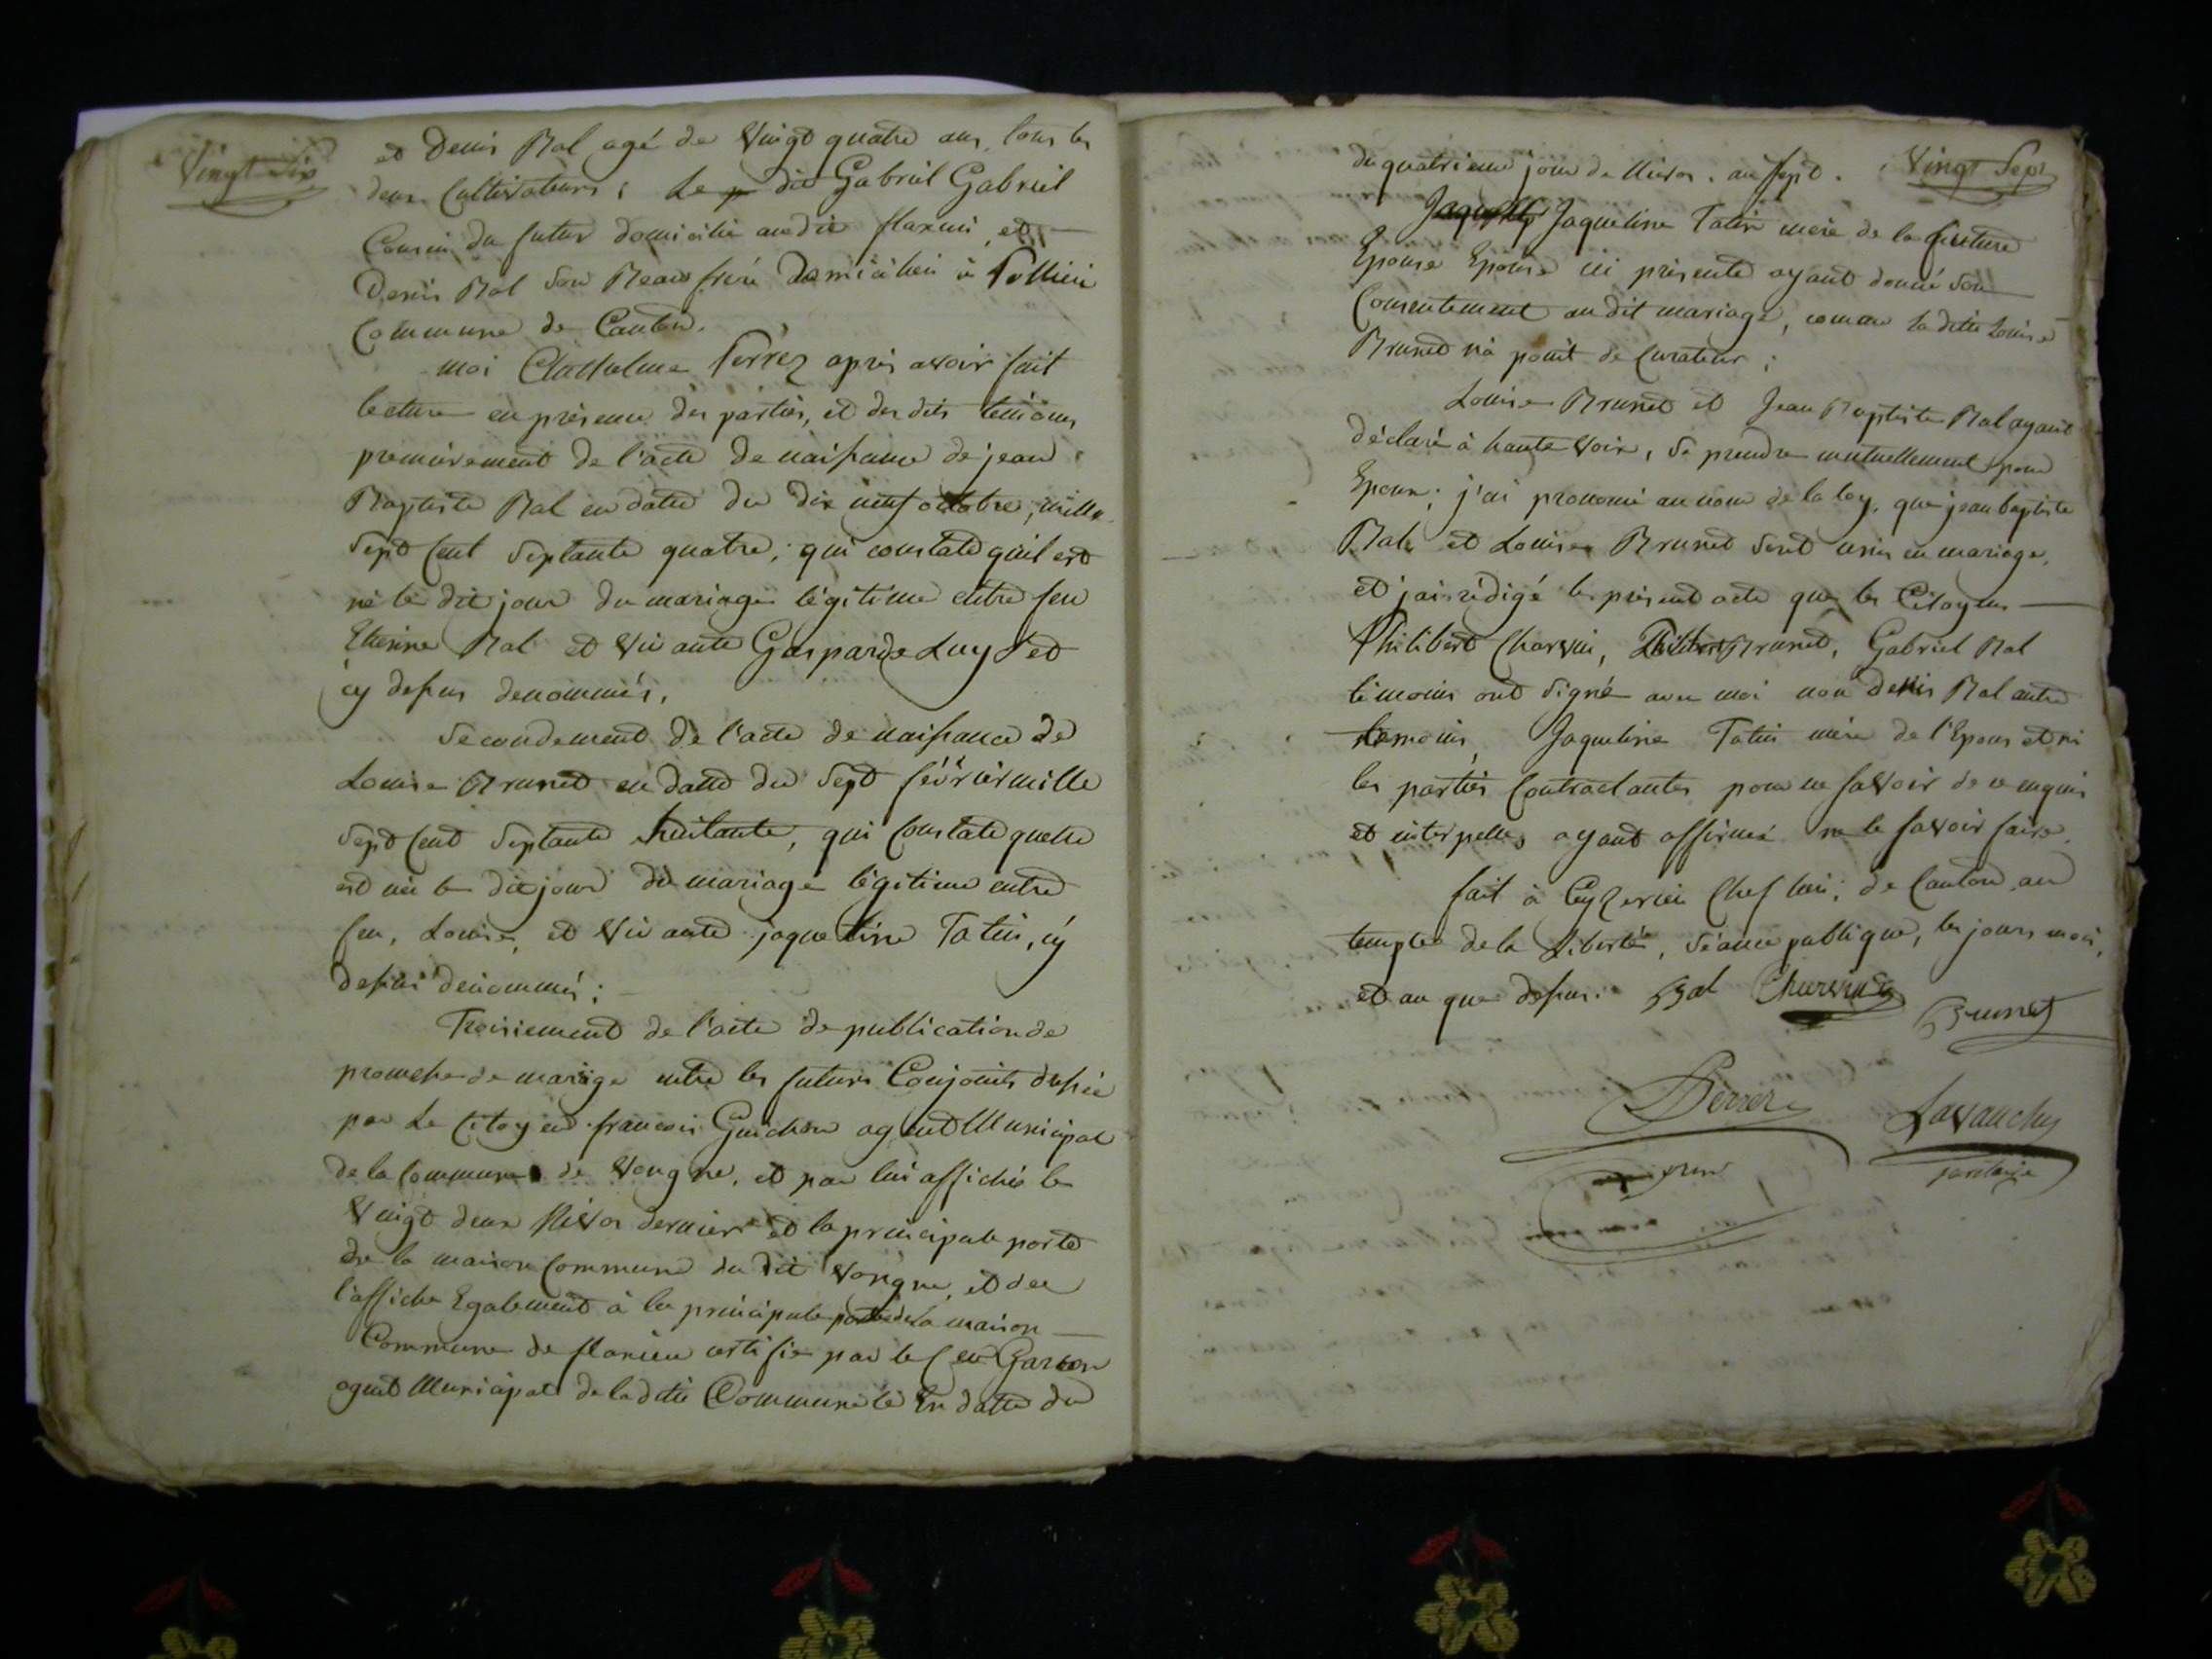 Vingt Six
et Denis Bal agé de Vingt quatre ans, tous les
deux Cultivateurs ; Le dit Gabriel Gabriel
Cousin du futur domicilié audit flaxieu, et
Denis Bal son Beau frere domicilieé à Pollieu
Commune de Canton.
moi Ferrez après avoir fait
lecture en présence des parties, et des dits temoins
premièrement de l'acte de naissance de jean
Baptiste Bal en datte du dix neuf octobre, mille
Sept Cent Septante quatre, qui constate qu'il est
né le dit jour du mariage légitime entre feu
Etienne Bal et Vivante Gasparde Luyset
cy dessus denommés,
Secondement de l'acte de naissance de
Louise Brunet en datte du Sept février mille
Sept Cent Septante huitante, qui Constate quelle
est née le dit jour du mariage légitime entre
feu, Louis, et Vivante jaqueline Tatin, cy
dessus dénommés ;
Troisiement de l'acte de publication de
promesse de mariage entre les futurs Conjoints dressée
par Le Citoyen francois Guichon agent Municipal
de la Commune de Vongne, et par lui affichée le
Vingt deux Nivos dernier et la principale porte
de la maison Commune du dit Vongne, et de
l'affiche Egalement à la principale porte de la maison
Commune de flaxieu certifié par le Cen Garcon
agent Municipal de la ditte Commune le En datte du
du quatrieme jour de Nivos. an Sept.
Vingt Sept
Jaqueline Tatin mère de la future
Epouse Epouse ici présente ayant donné son
Consentement au dit mariage, comme la ditte Louise
Brunet n'a point de Curateur ;
Louise Brunet et Jean Baptiste Bal ayant
déclaré à haute Voix, se prendre mutuellement pour
Epoux ; j'ai prononcé au nom de la loy, que jean baptiste
Bal et Louise Brunet sont unis en mariage,
et j'ai rédigé le présent acte que les Citoyens
Philibert Charvin, Brunet, Gabriel Bal
temoins ont signé avec moi non Denis Bal autre
temoins, Jaqueline Tatin mère de l'Epous et ni
les parties Contractantes pour ne savoir de ce enquis
et interpellés ayant affirmé ne le savoir faire.
fait à Ceyzerieu Chef lieu, de Canton au
temple de la Liberté, séance publique, les jours mois,
et an que dessus. Bal Charvin
Brunet
Ferrez
Lavanchy